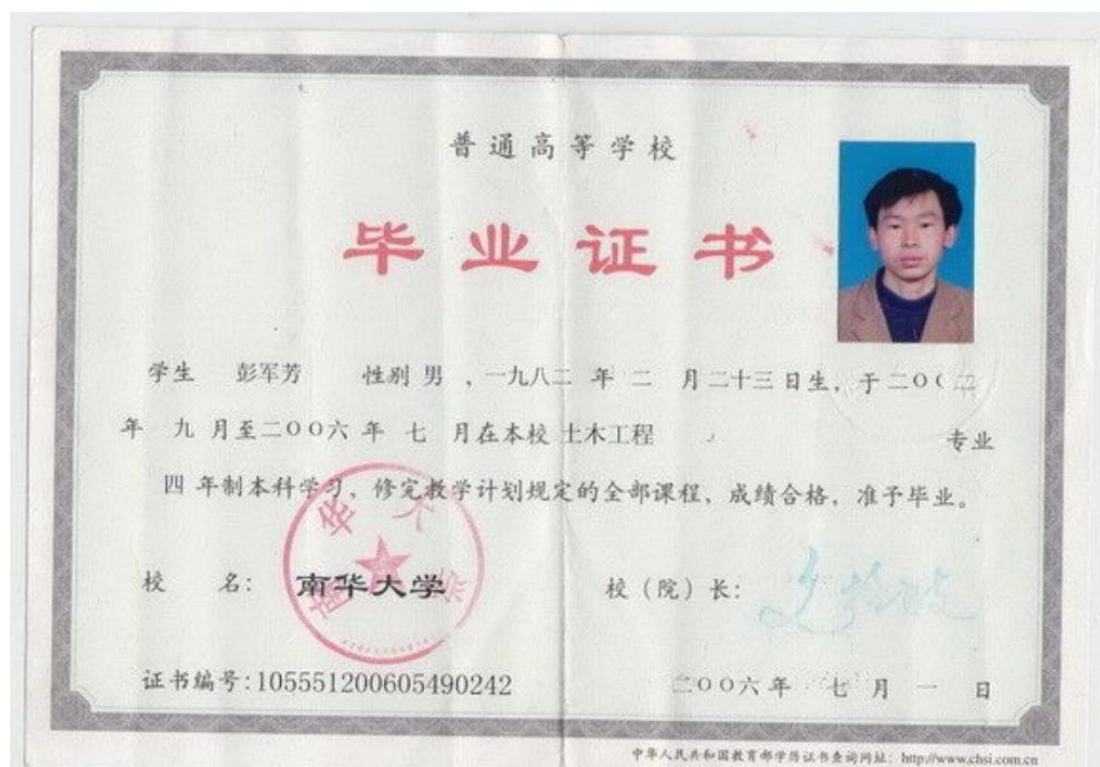 普通高等学校
毕业证书
学生 彭军芳 性别 男 ，一九八二 年 二 月 二十三 日生，于二〇〇二
年 九 月至二〇〇六 年 七 月在本校 土木工程 专业
四 年制本科学习，修完教学计划规定的全部课程，成绩合格，准予毕业。
校 名： 南华大学 校（院）长：
南华大学
证书编号:105551200605490242 二〇〇六年 七 月 一 日
中华人民共和国教育部学历证书查询网址：http://www.chsi.com.cn